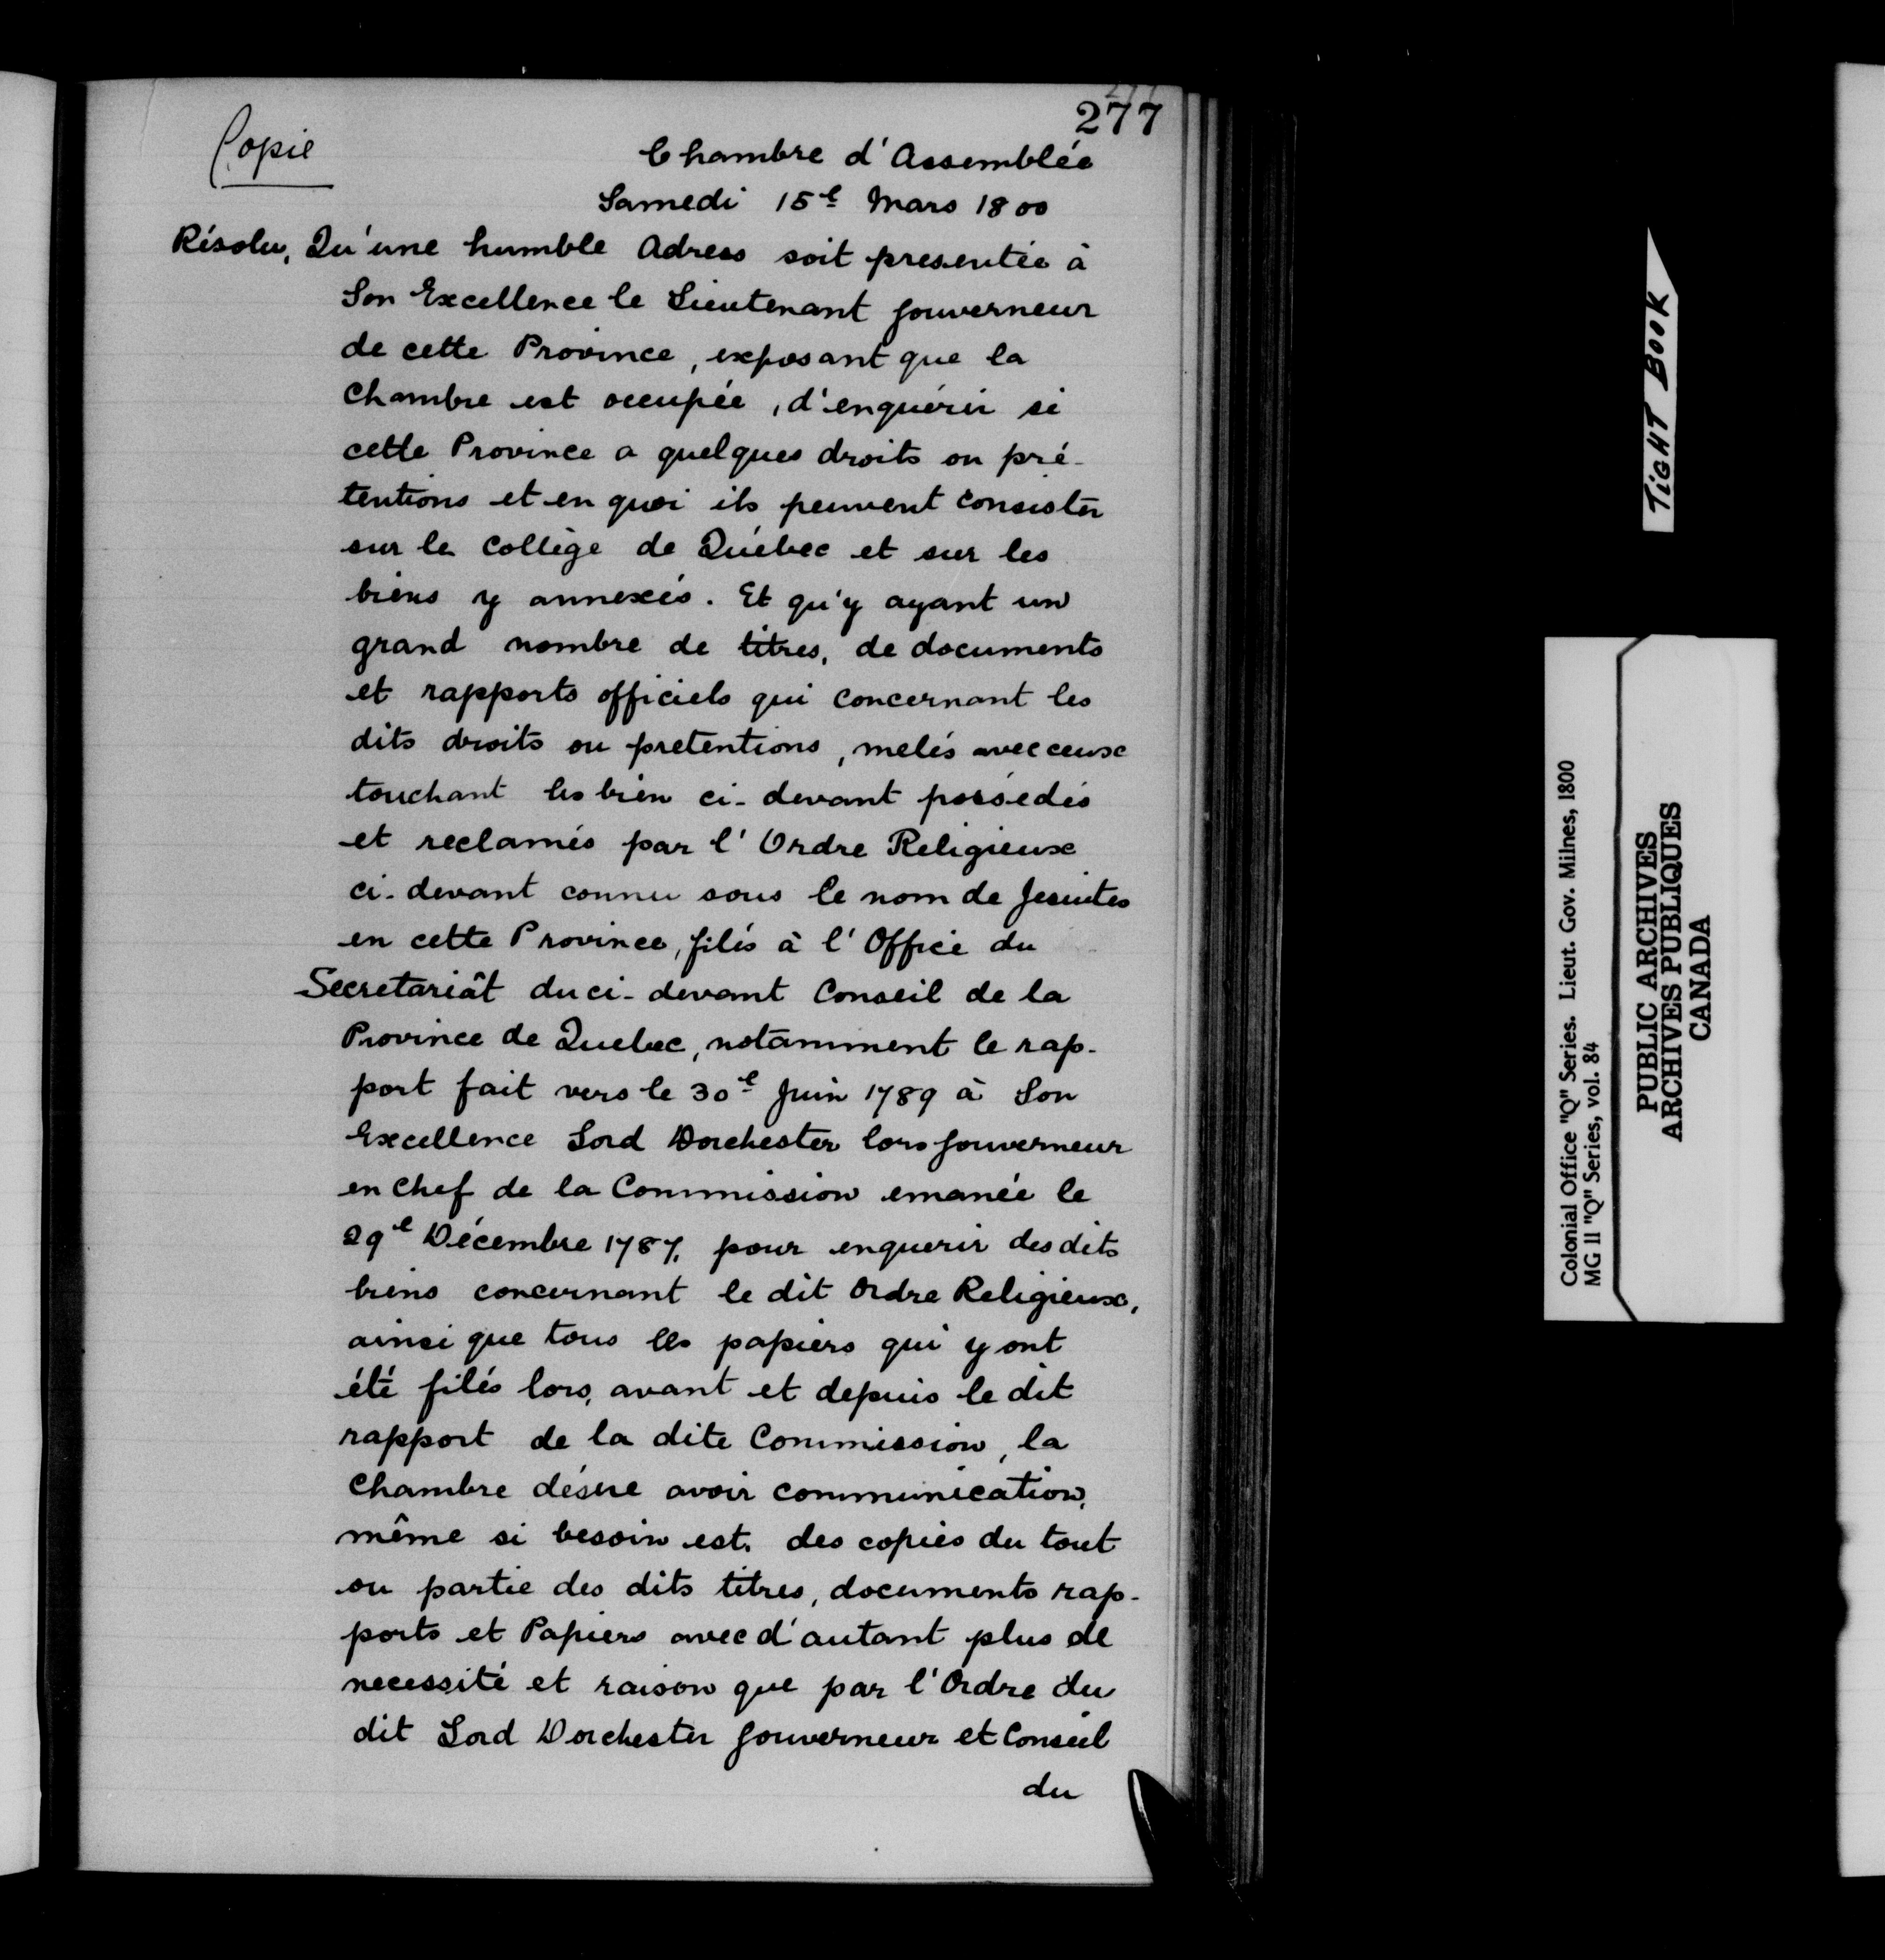 277
Copie
Chambre d'Assemblée
Samedi 15e Mars 1800
Résolu, Qu'une humble Adress soit presentée à
Son Excellence le Lieutenant Gouverneur
de cette Province, exposant que la
Chambre est occupée, d'enquérir si
cette Province a quelques droits ou pré-
tentions et en quoi ils peuvent consister
sur le Collège de Québec et sur les
biens y annexés. Et qu'y ayant un
grand nombre de titres, de documents
et rapports officiels qui concernant les
dits droits ou pretentions, melés avec ceux
touchant les bien ci-devant possedés
et reclamés par l'Ordre Religieux
ci-devant connu sous le nom de Jesuites
en cette Province, filés à l'Office du
Secretariât du ci-devant Conseil de la
Province de Quebec, notamment le rap-
port fait vers le 30e Juin 1789 à Son
Excellence Lord Dorchester lors Gouverneur
en Chef de la Commission emanée le
29e Décembre 1787, pour enquerir des dits
biens concernant le dit Ordre Religieux,
ainsi que tous les papiers qui y ont
été filés lors, avant et depuis le dit
rapport de la dite Commission, la
Chambre désire avoir communication,
même si besoin est, des copies du tout
ou partie des dits titres, documents rap-
ports et Papiers avec d'autant plus de
necessité et raison que par l'Ordre du
dit Lord Dorchester Gouverneur et Conseil
du
TIGHT BOOK
Colonial Office "Q" Series. Lieut. Gov. Milnes, 1800
MG 11 "Q" Series, vol. 84
PUBLIC ARCHIVES
ARCHIVES PUBLIQUES
CANADA